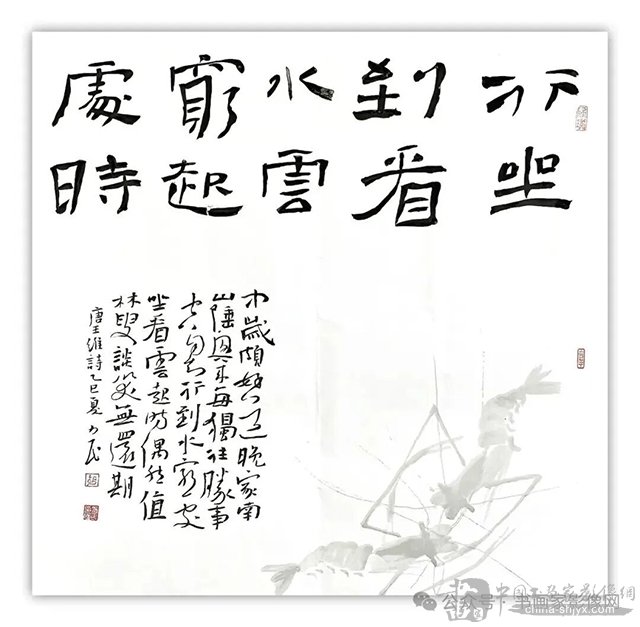 行到水窮處
坐看雲起時
中歲頗好道晚家南
山陲興來每獨往勝事
空自知行到水窮處
坐看雲起時偶然值
林叟談笑無還期
唐王維詩乙巳夏
中国书画家影像網
公众号·书画家影像网
china-shjyx.com